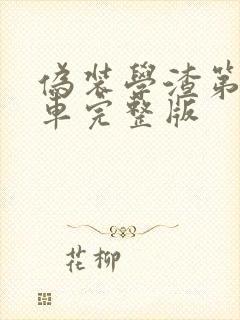 偽裝學渣第
車完整版
花柳